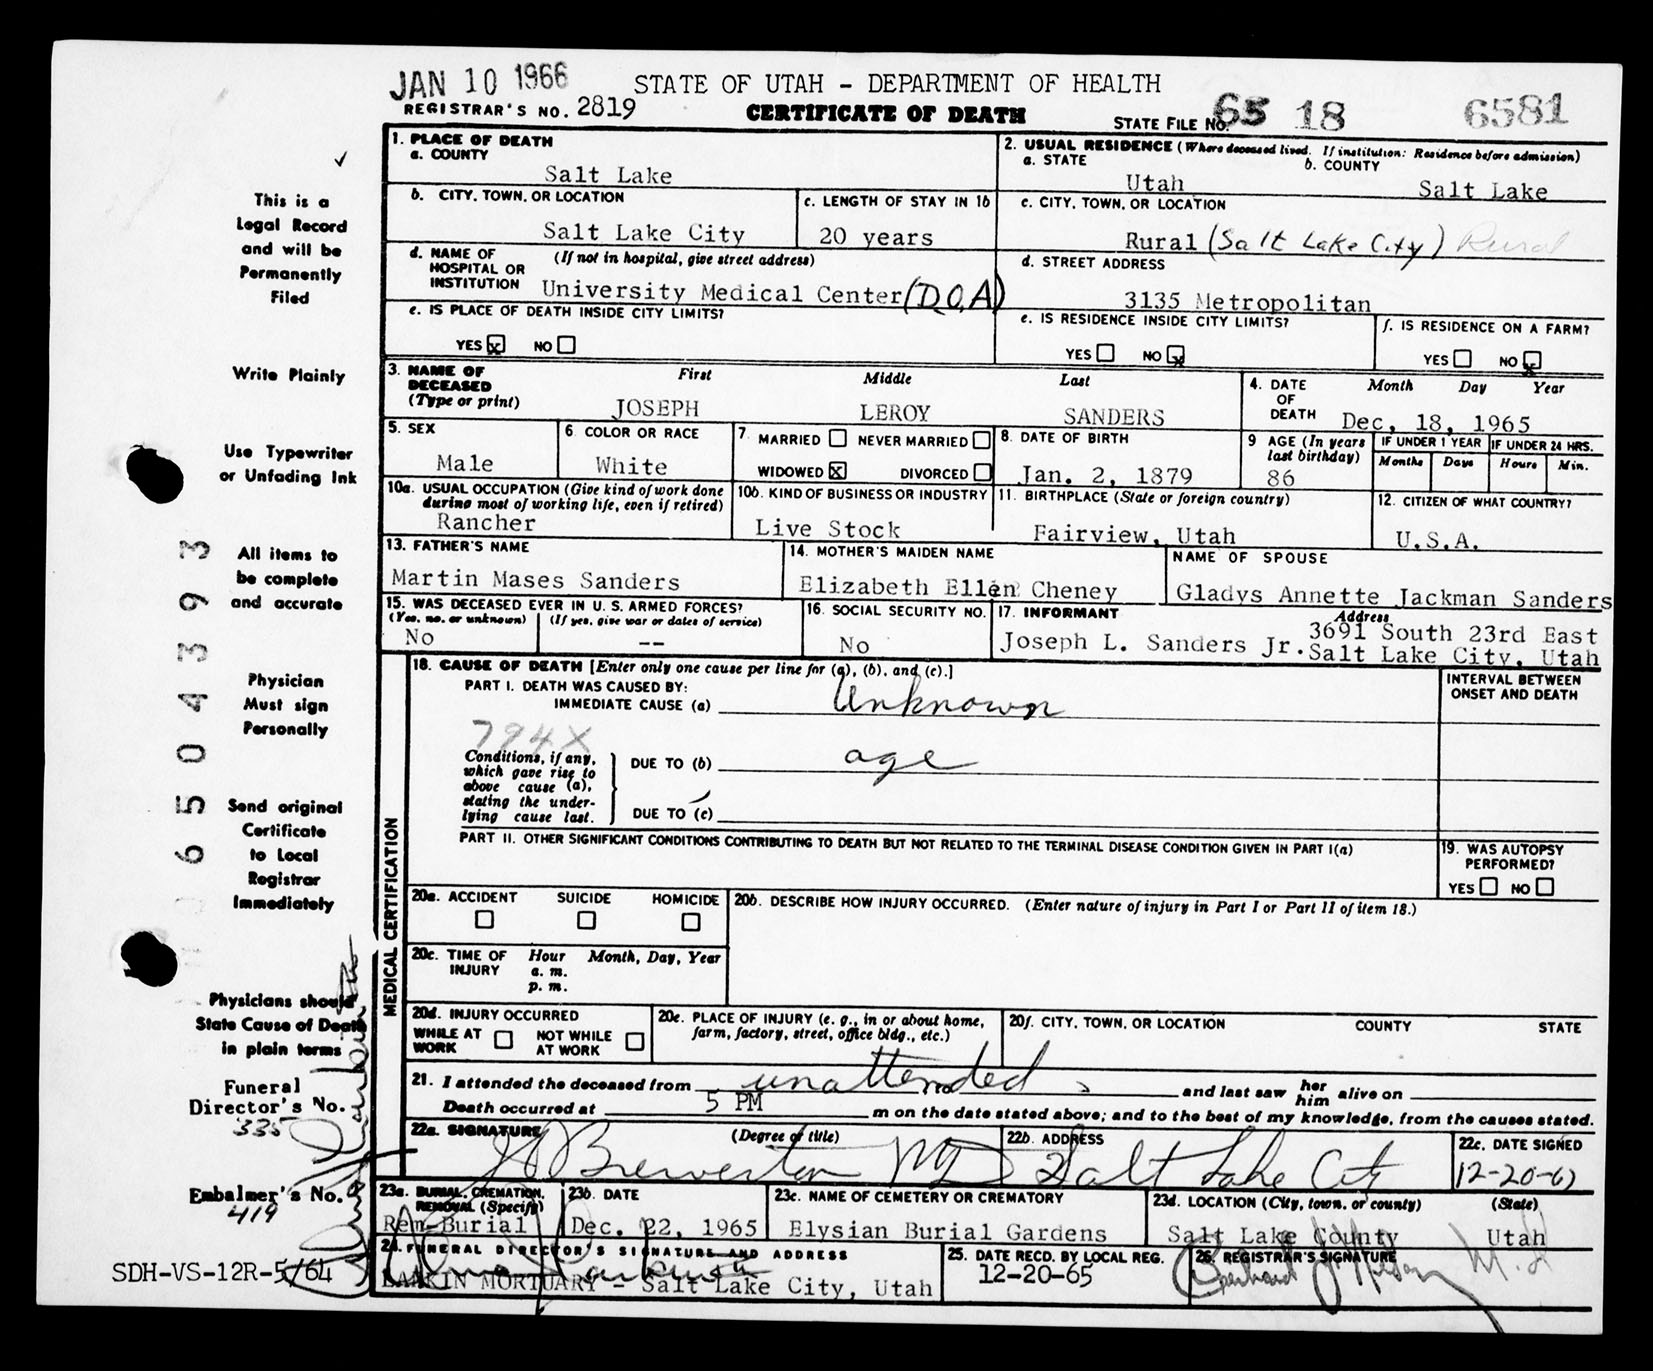 JAN 10 1966
STATE OF UTAH - DEPARTMENT OF HEALTH
REGISTRAR'S NO. 2819
CERTIFICATE OF DEATH
STATE FILE NO. 65 18 6581
This is a
Legal Record
and will be
Permanently
Filed
Write Plainly
Use Typewriter
or Unfading Ink
All items to
be complete
and accurate
Physician
Must sign
Personally
Send original
Certificate
to Local
Registrar
Immediately
Physicians should
State Cause of Death
in plain terms
Funeral
Director's No.
335
Embalmer's No.
419
SDH-VS-12R-5/64
6504393
1. PLACE OF DEATH
a. COUNTY
Salt Lake
2. USUAL RESIDENCE (Where deceased lived. If institution: Residence before admission)
a. STATE
Utah
b. COUNTY
Salt Lake
b. CITY, TOWN, OR LOCATION
Salt Lake City
c. LENGTH OF STAY IN 1b
20 years
c. CITY, TOWN, OR LOCATION
Rural (Salt Lake City) Rural
d. NAME OF HOSPITAL OR INSTITUTION
(If not in hospital, give street address)
University Medical Center (D.O.A)
d. STREET ADDRESS
3135 Metropolitan
e. IS PLACE OF DEATH INSIDE CITY LIMITS?
YES x NO
e. IS RESIDENCE INSIDE CITY LIMITS?
YES NO x
f. IS RESIDENCE ON A FARM?
YES NO x
3. NAME OF DECEASED (Type or print)
First Middle Last
JOSEPH LEROY SANDERS
4. DATE OF DEATH
Month Day Year
Dec. 18, 1965
5. SEX
Male
6. COLOR OR RACE
White
7. MARRIED NEVER MARRIED
WIDOWED x DIVORCED
8. DATE OF BIRTH
Jan. 2, 1879
9 AGE (In years last birthday)
86
IF UNDER 1 YEAR
Months Days
IF UNDER 24 HRS.
Hours Min.
10a. USUAL OCCUPATION (Give kind of work done during most of working life, even if retired)
Rancher
10b. KIND OF BUSINESS OR INDUSTRY
Live Stock
11. BIRTHPLACE (State or foreign country)
Fairview, Utah
12. CITIZEN OF WHAT COUNTRY?
U.S.A.
13. FATHER'S NAME
Martin Mases Sanders
14. MOTHER'S MAIDEN NAME
Elizabeth Ellen Cheney
NAME OF SPOUSE
Gladys Annette Jackman Sanders
15. WAS DECEASED EVER IN U. S. ARMED FORCES?
(Yes, no, or unknown) (If yes, give war or dates of service)
No --
16. SOCIAL SECURITY NO.
No
17. INFORMANT
Address
Joseph L. Sanders Jr. 3691 South 23rd East
Salt Lake City, Utah
MEDICAL CERTIFICATION
18. CAUSE OF DEATH [Enter only one cause per line for (a), (b), and (c).]
PART I. DEATH WAS CAUSED BY:
IMMEDIATE CAUSE (a) Unknown
INTERVAL BETWEEN ONSET AND DEATH
794X
Conditions, if any, which gave rise to above cause (a), stating the underlying cause last.
DUE TO (b) age
DUE TO (c)
PART II. OTHER SIGNIFICANT CONDITIONS CONTRIBUTING TO DEATH BUT NOT RELATED TO THE TERMINAL DISEASE CONDITION GIVEN IN PART I(a)
19. WAS AUTOPSY PERFORMED?
YES NO
20a. ACCIDENT SUICIDE HOMICIDE
20b. DESCRIBE HOW INJURY OCCURRED. (Enter nature of injury in Part I or Part II of item 18.)
20c. TIME OF INJURY
Hour Month, Day, Year
a. m.
p. m.
20d. INJURY OCCURRED
WHILE AT WORK NOT WHILE AT WORK
20e. PLACE OF INJURY (e. g., in or about home, farm, factory, street, office bldg., etc.)
20f. CITY, TOWN, OR LOCATION COUNTY STATE
21. I attended the deceased from unattended to and last saw her him alive on
Death occurred at 5 PM m on the date stated above; and to the best of my knowledge, from the causes stated.
22a. SIGNATURE
(Degree or title)
Brewerton MD
22b. ADDRESS
Salt Lake City
22c. DATE SIGNED
12-20-6
23a. BURIAL, CREMATION, REMOVAL (Specify)
Rem-Burial
23b. DATE
Dec. 22, 1965
23c. NAME OF CEMETERY OR CREMATORY
Elysian Burial Gardens
23d. LOCATION (City, town, or county) (State)
Salt Lake County Utah
24. FUNERAL DIRECTOR'S SIGNATURE AND ADDRESS
LARKIN MORTUARY - Salt Lake City, Utah
25. DATE RECD. BY LOCAL REG.
12-20-65
26. REGISTRAR'S SIGNATURE
M.D